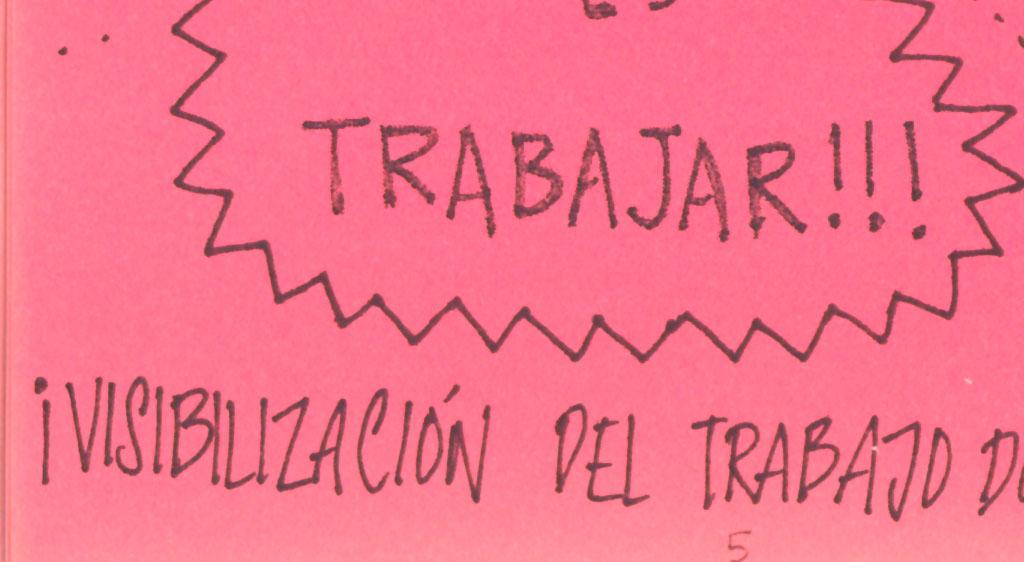 TRABAJAR!!!
¡VISIBILIZACIÓN DEL TRABAJO
5